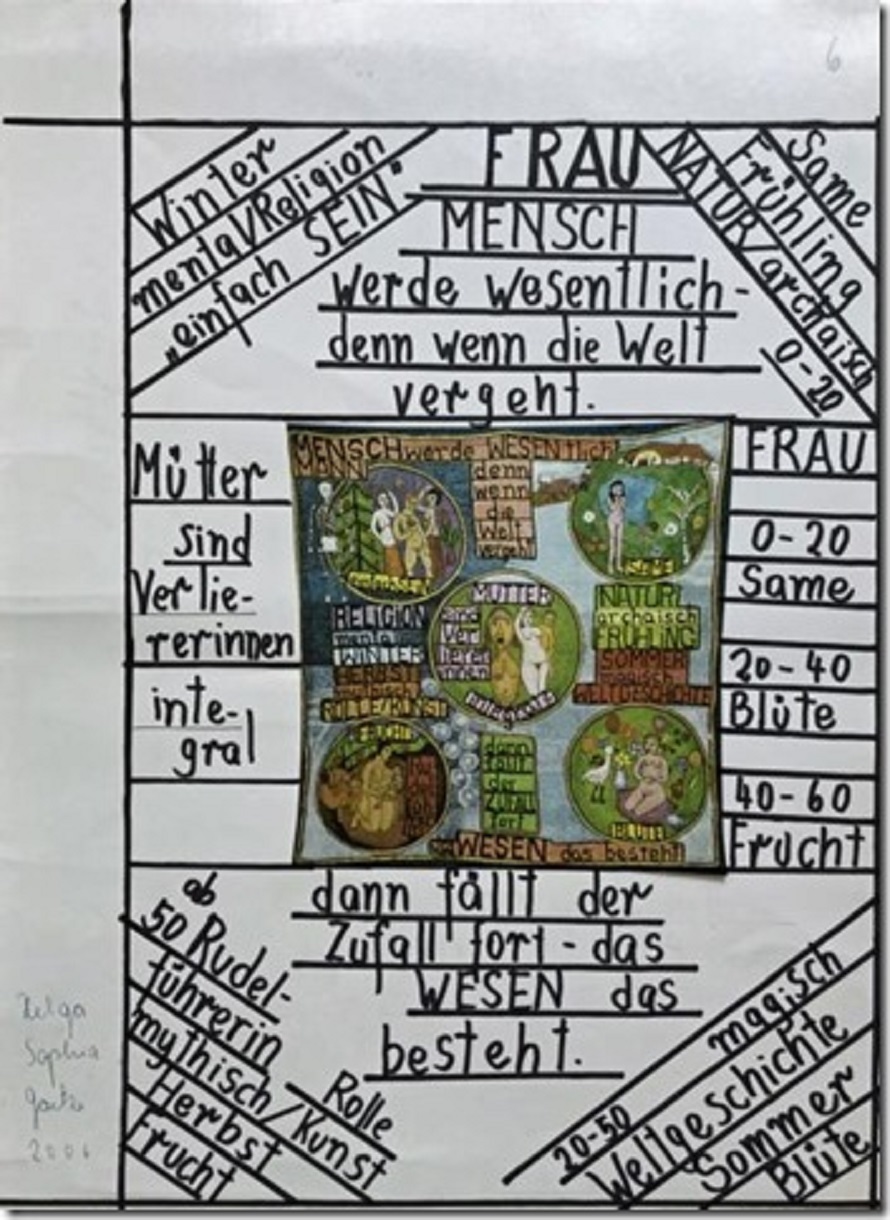 6
Winter
mental/Religion
„einfach SEIN"
FRAU
MENSCH
werde wesentlich-
denn wenn die Welt
vergeht.
Same
Frühling
NATUR/archaisch
0-20
Mütter
sind
Verlie-
rerinnen
inte-
gral
MENSCH werde WESENtlich!
denn
wenn
die
Welt
vergeht
SAME
MÜTTER
sind
Ver
lierer
innen
RELIGION
mental
WINTER
HERBST
mythisch
ROLLE/KUNST
NATUR
archaisch
FRÜHLING
SOMMER
magisch
WELTGESCHICHTE
FRUCHT
dann
fällt
der
ZUFALL
fort
BLÜTE
WESEN das besteht
FRAU
0-20
Same
20-40
Blüte
40-60
Frucht
dann fällt der
Zufall fort - das
WESEN das
besteht.
ab
50 Rudel-
führerin
mythisch/Kunst
Rolle
Herbst
Frucht
magisch
20-50
Weltgeschichte
Sommer
Blüte
Helga
Sophia